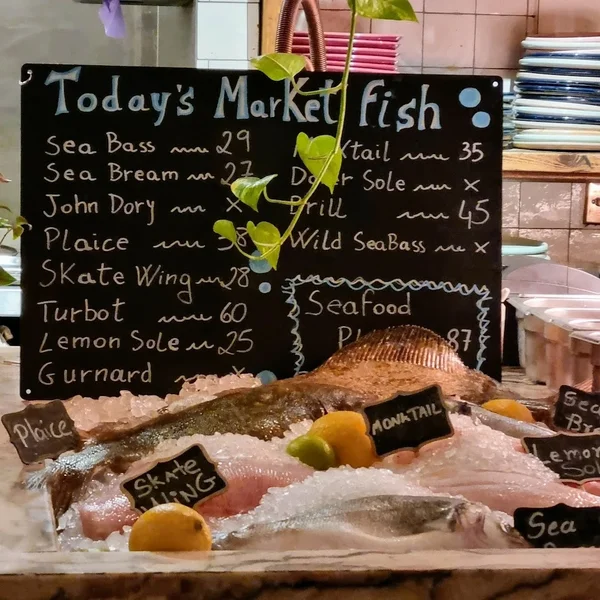 Today's Market fish
Sea Bass 29
Sea Bream 27
John Dory x
Plaice 38
Skate Wing 28
Turbot 60
Lemon Sole 25
Gurnard x
Monktail 35
Dover Sole x
Brill 45
Wild SeaBass x
Seafood
87
Plaice
Skate
Wing
Monktail
Sea
Lemon
Sole
Sea